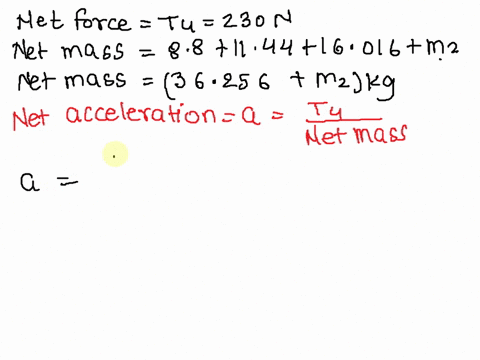 Net force = T4 = 230 N
Net mass = 8.8 + 11.44 + 16.016 + m2
Net mass = (36.256 + m2) kg
Net acceleration = a = T4 / Net mass
a =